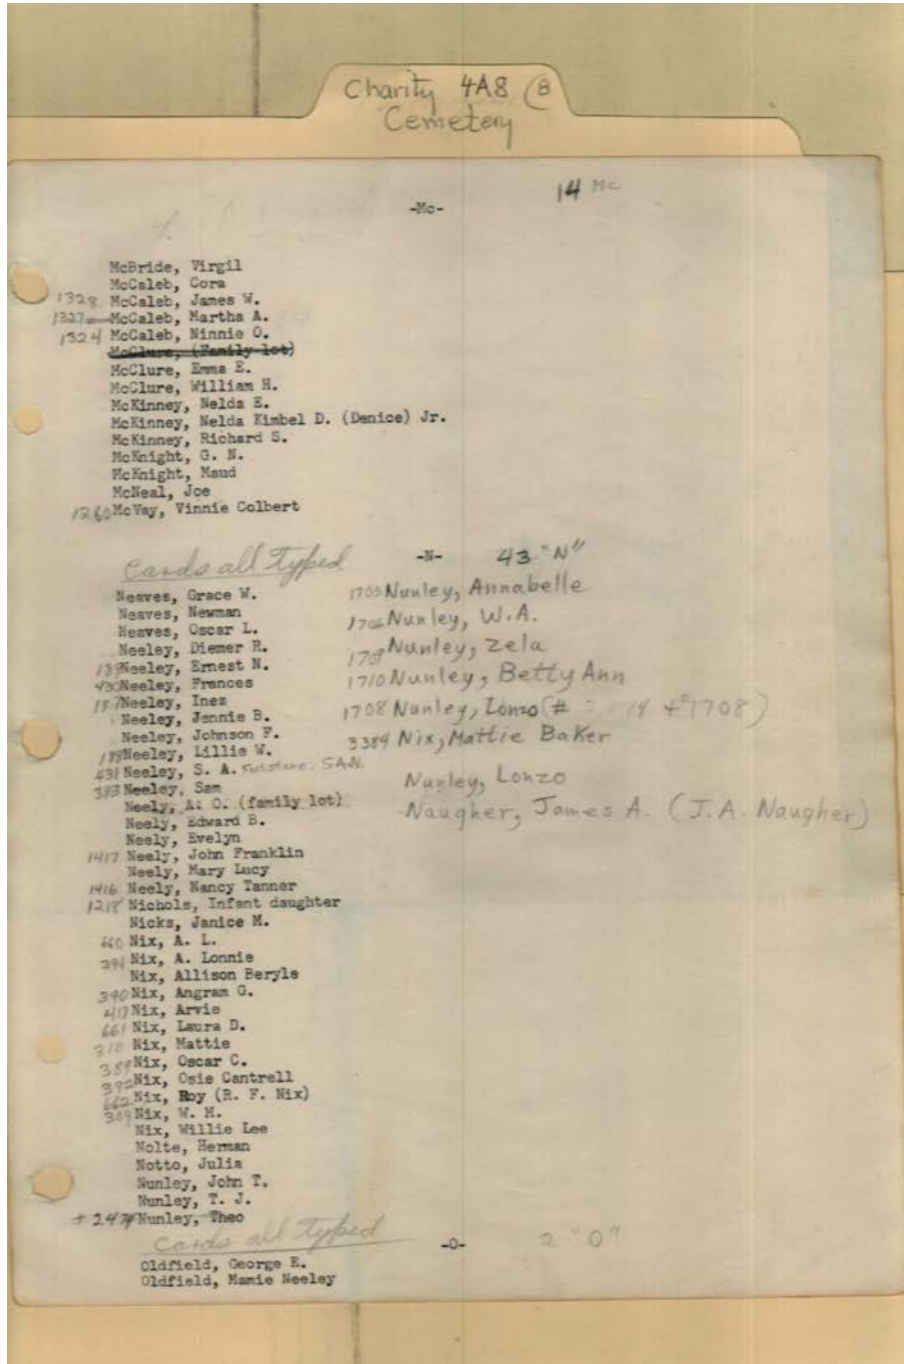 Charity 4A8 (B)
Cemetery
14 Mc
-Mc-
McBride, Virgil
McCaleb, Cora
1328 McCaleb, James W.
1327 McCaleb, Martha A.
1324 McCaleb, Ninnie O.
McClure, (Family lot)
McClure, Emma E.
McClure, William H.
McKinney, Nelda E.
McKinney, Nelda Kimbel D. (Denice) Jr.
McKinney, Richard S.
McKnight, G. N.
McKnight, Maud
McNeal, Joe
1260 McVay, Vinnie Colbert
cards all typed
-N- 43 "N"
Neaves, Grace W.
Neaves, Newman
Neaves, Oscar L.
Neeley, Diemer R.
Neeley, Ernest N.
430 Neeley, Frances
Neeley, Inez
Neeley, Jennie B.
Neeley, Johnson F.
Neeley, Lillie W.
431 Neeley, S. A. S.A.N.
383 Neeley, Sam
Neely, A. O. (family lot)
Neely, Edward B.
Neely, Evelyn
1417 Neely, John Franklin
Neely, Mary Lucy
1416 Neely, Nancy Tanner
1218 Nichols, Infant daughter
Nicks, Janice M.
660 Nix, A. L.
391 Nix, A. Lonnie
Nix, Allison Beryle
390 Nix, Angram G.
Nix, Arvie
661 Nix, Laura D.
Nix, Mattie
389 Nix, Oscar C.
392 Nix, Osie Cantrell
662 Nix, Roy (R. F. Nix)
Nix, W. M.
Nix, Willie Lee
Nolte, Herman
Notto, Julia
Nunley, John T.
Nunley, T. J.
+ 2474 Nunley, Theo
1705 Nunley, Annabelle
1706 Nunley, W.A.
Nunley, Zela
1710 Nunley, Betty Ann
1708 Nunley, Lonzo (# + #1708)
3384 Nix, Mattie Baker
Nunley, Lonzo
Naugher, James A. (J.A. Naugher)
cards all typed
-O- 2 "O"
Oldfield, George E.
Oldfield, Mamie Neeley